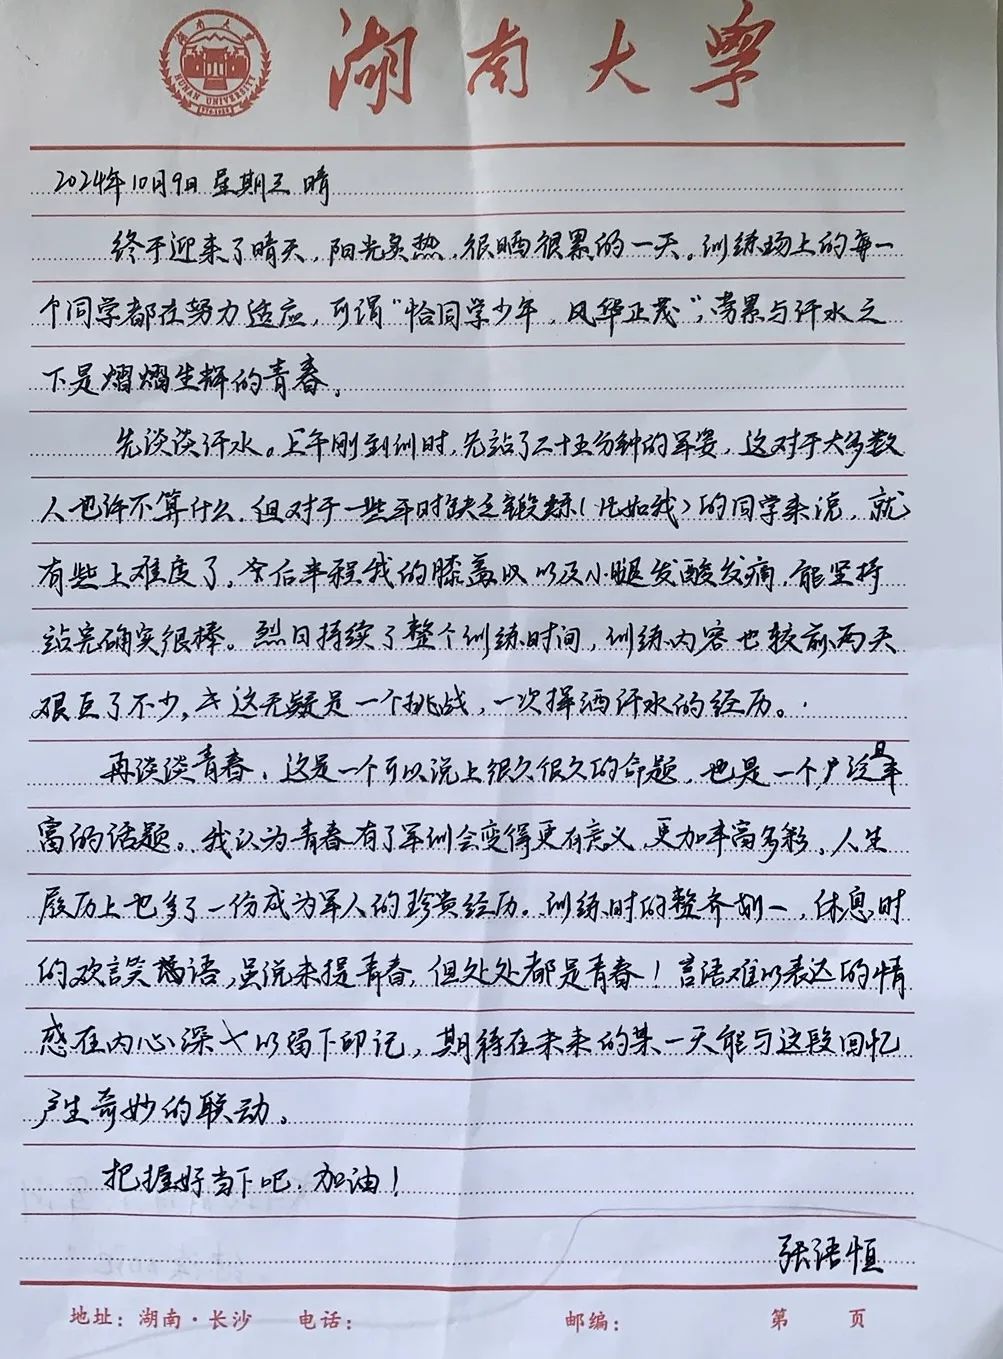 湖南大学
HUNAN UNIVERSITY
2024年10月9日 星期三 晴
终于迎来了晴天，阳光炙热，很晒很累的一天。训练场上的每一
个同学都在努力适应，可谓“恰同学少年，风华正茂”，劳累与汗水之
下是熠熠生辉的青春。
先谈谈汗水。上午刚到训时，先站了二十五分钟的军姿，这对于大多数
人也许不算什么，但对于一些平时缺乏锻炼（比如我）的同学来说，就
有些上难度了。后半程我的膝盖以及小腿发酸发痛，能坚持
站完确实很棒。烈日持续了整个训练时间，训练内容也较前两天
艰巨了不少，这无疑是一个挑战，一次挥洒汗水的经历。
再谈谈青春，这是一个可以说上很久很久的命题，也是一个广泛且丰
富的话题。我认为青春有了军训会变得更有意义，更加丰富多彩，人生
履历上也多了一份成为军人的珍贵经历。训练时的整齐划一，休息时
的欢言笑语，虽说未提青春，但处处都是青春！言语难以表达的情
感在内心深处以留下印记，期待在未来的某一天能与这段回忆
产生奇妙的联动。
把握好当下吧，加油！
张语恒
地址：湖南·长沙 电话： 邮编： 第 页